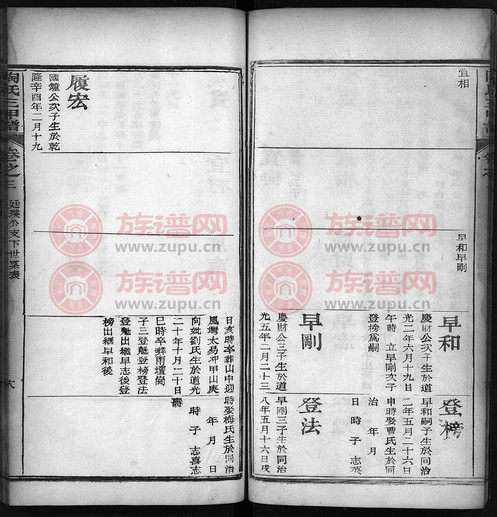 宜相
早和早剛
早和
慶財公次子生於道
光二年六月十九日
午時 立早剛次子
登榜爲嗣
早剛
慶財公三子生於道
光五年二月二十三
登榜
早和嗣子生於同治
二年五月二十六日
申時娶曹氏生於同
治 年 月
日 時子 志英
登法
早剛三子生於同治
八年五月十六日戌
陶氏三甲譜
卷之三
廷璞公支下世系表
履宏
國鐘公次子生於乾
隆辛酉年二月十九
日亥時卒葬山中迎
風灣太易冲甲山庚
向娶劉氏生於道光
二十年十月二十日
巳時卒葬雨壇崗
子三登魁登榜登法
登魁出繼早志後登
榜出繼早和後
時娶梅氏生於同治
年 月 日
時子 志喜志
壽
族谱网
www.zupu.cn
族谱网
www.zupu.cn